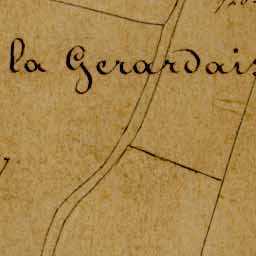 la Gerardais